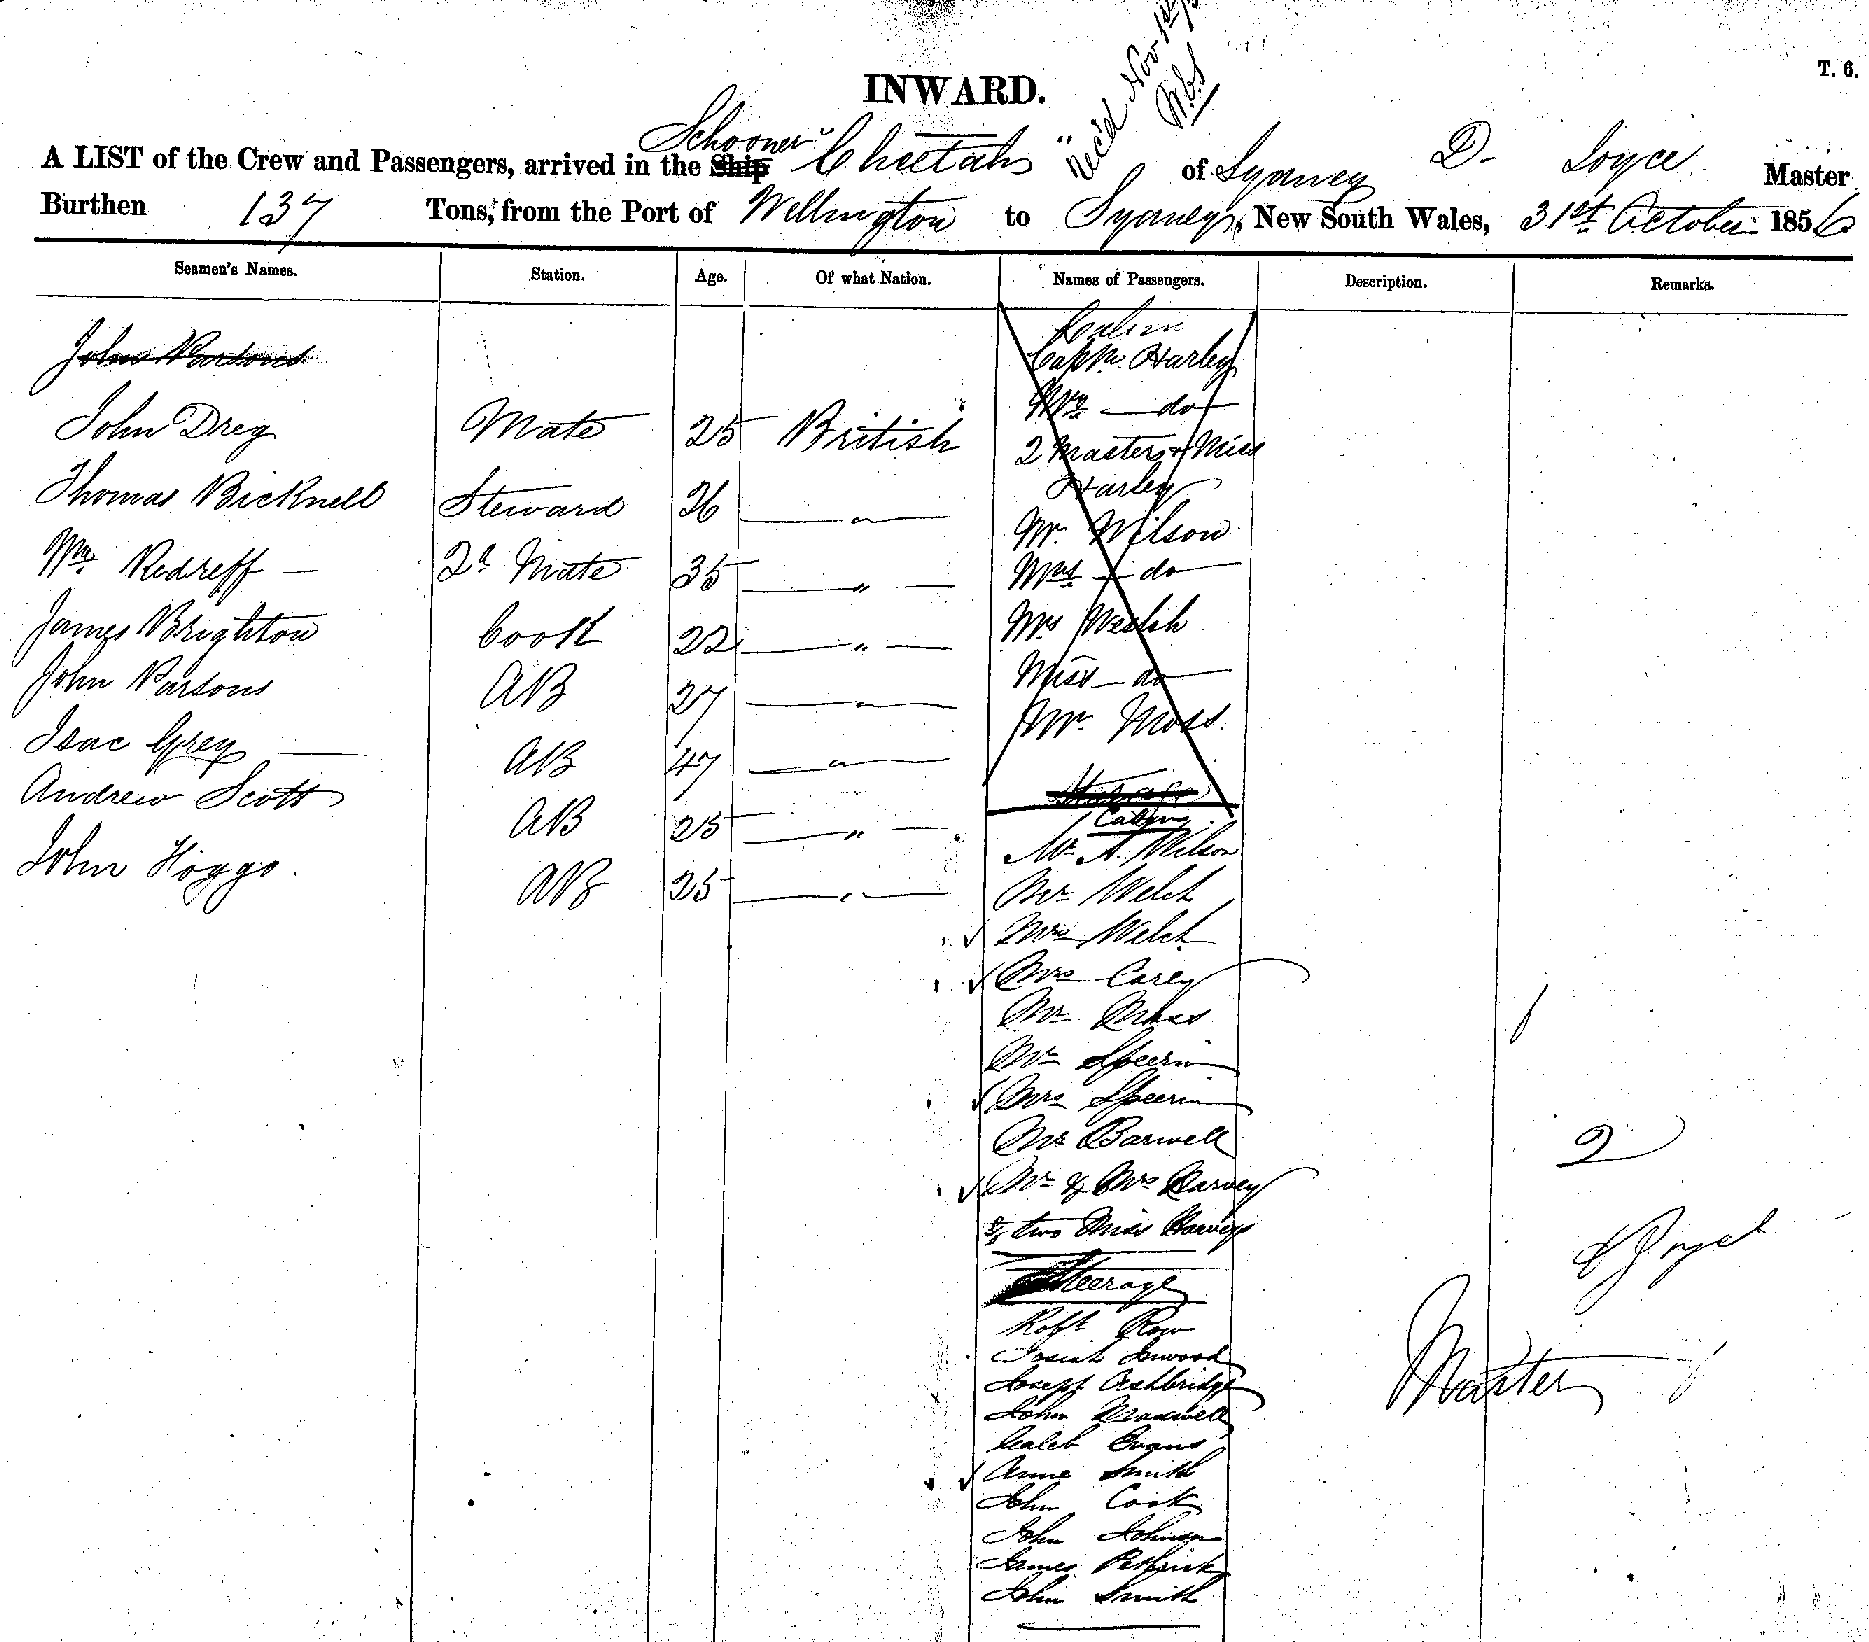 T. 6.
Rec'd Nov 1st
INWARD.
Schooner
A LIST of the Crew and Passengers, arrived in the Ship "Cheetah" of Sydney D. Joyce Master
Burthen 137 Tons, from the Port of Wellington to Sydney, New South Wales, 31st October 1856
Seamen's Names. Station. Age. Of what Nation. Names of Passengers. Description. Remarks.
John Parsons
John Drey Mate 25 British
Thomas Bicknell Steward 26 "
Wm Redreff 2d Mate 35 "
James Brighton Cook 22 "
John Parsons AB 27 "
Isac Grey AB 47 "
Andrew Scott AB 25 "
John Hoggs. AB 25 "
Cabin
Captn Harley
Mrs do
2 Masters & Miss
Harley
Mr. Wilson
Mrs do
Mrs Welch
Miss do
Mr. Moss.
Steerage
Cabin
Mr A. Wilson
Mr Welch
Mrs Welch
Mrs Carey
Mr
Mr Speerin
Mrs Speerin
Mr Barwell
Mr & Mrs Harvey
& two Miss Harveys
Steerage
Robt Row
Josiah
Joseph Ashbridge
John
Caleb Evans
Anne Smith
John Cook
John Johnson
James
John Smith
2
D Joyce
Master